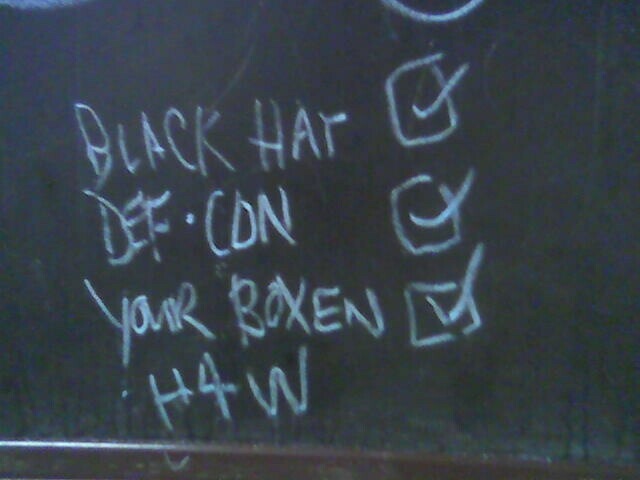 BLACK HAT
DEF·CON
YOUR BOXEN
H4W